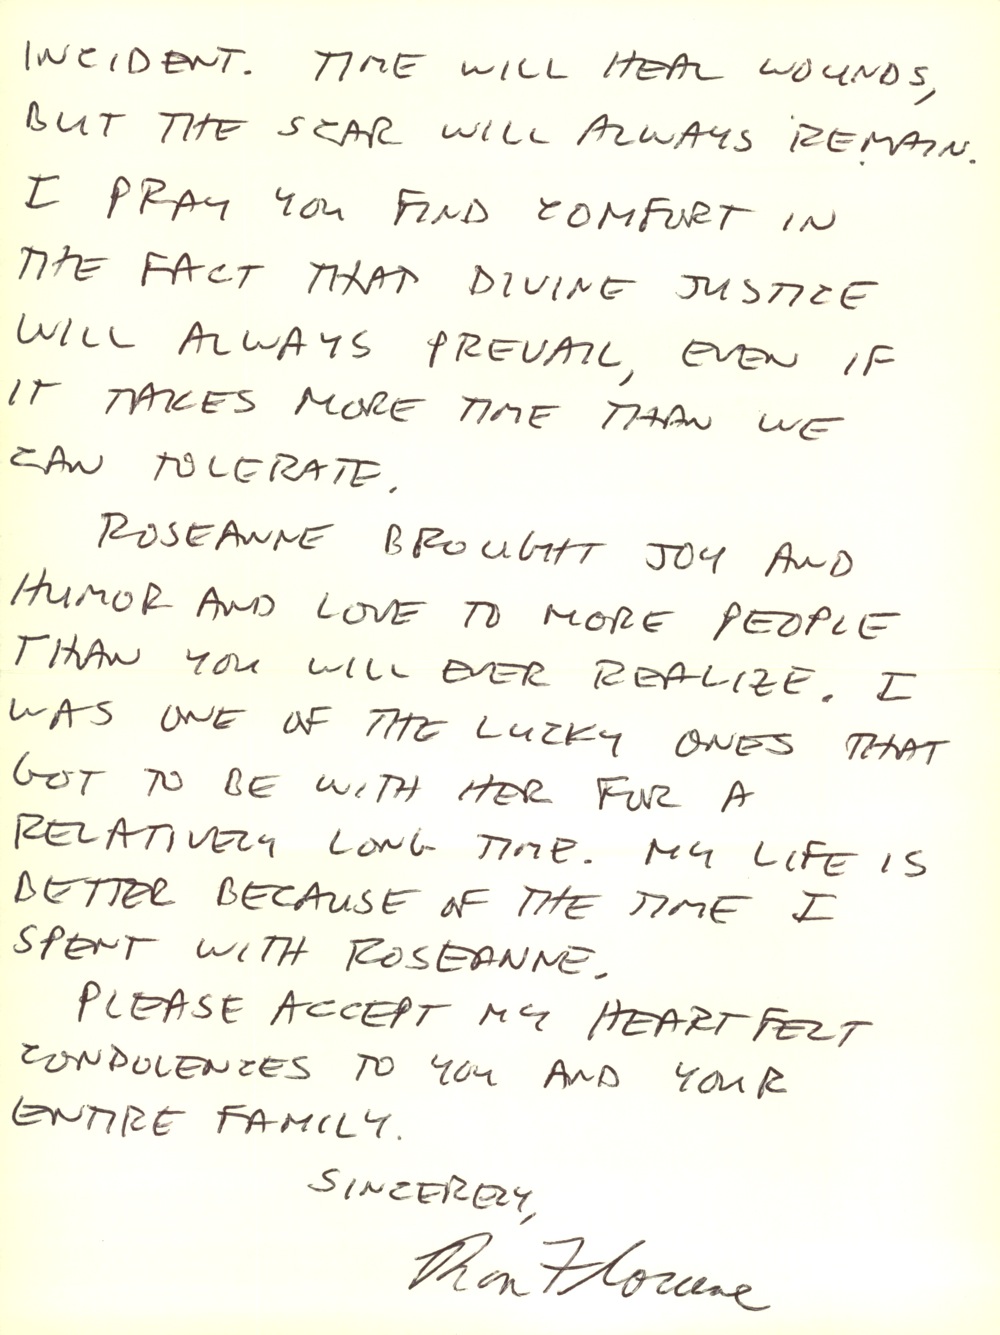 INCIDENT. TIME WILL HEAL WOUNDS,
BUT THE SCAR WILL ALWAYS REMAIN.
I PRAY YOU FIND COMFORT IN
THE FACT THAT DIVINE JUSTICE
WILL ALWAYS PREVAIL, EVEN IF
IT TAKES MORE TIME THAN WE
CAN TOLERATE.
ROSEANNE BROUGHT JOY AND
HUMOR AND LOVE TO MORE PEOPLE
THAN YOU WILL EVER REALIZE. I
WAS ONE OF THE LUCKY ONES THAT
GOT TO BE WITH HER FOR A
RELATIVELY LONG TIME. MY LIFE IS
BETTER BECAUSE OF THE TIME I
SPENT WITH ROSEANNE.
PLEASE ACCEPT MY HEARTFELT
CONDOLENCES TO YOU AND YOUR
ENTIRE FAMILY.
SINCERELY,
Ron